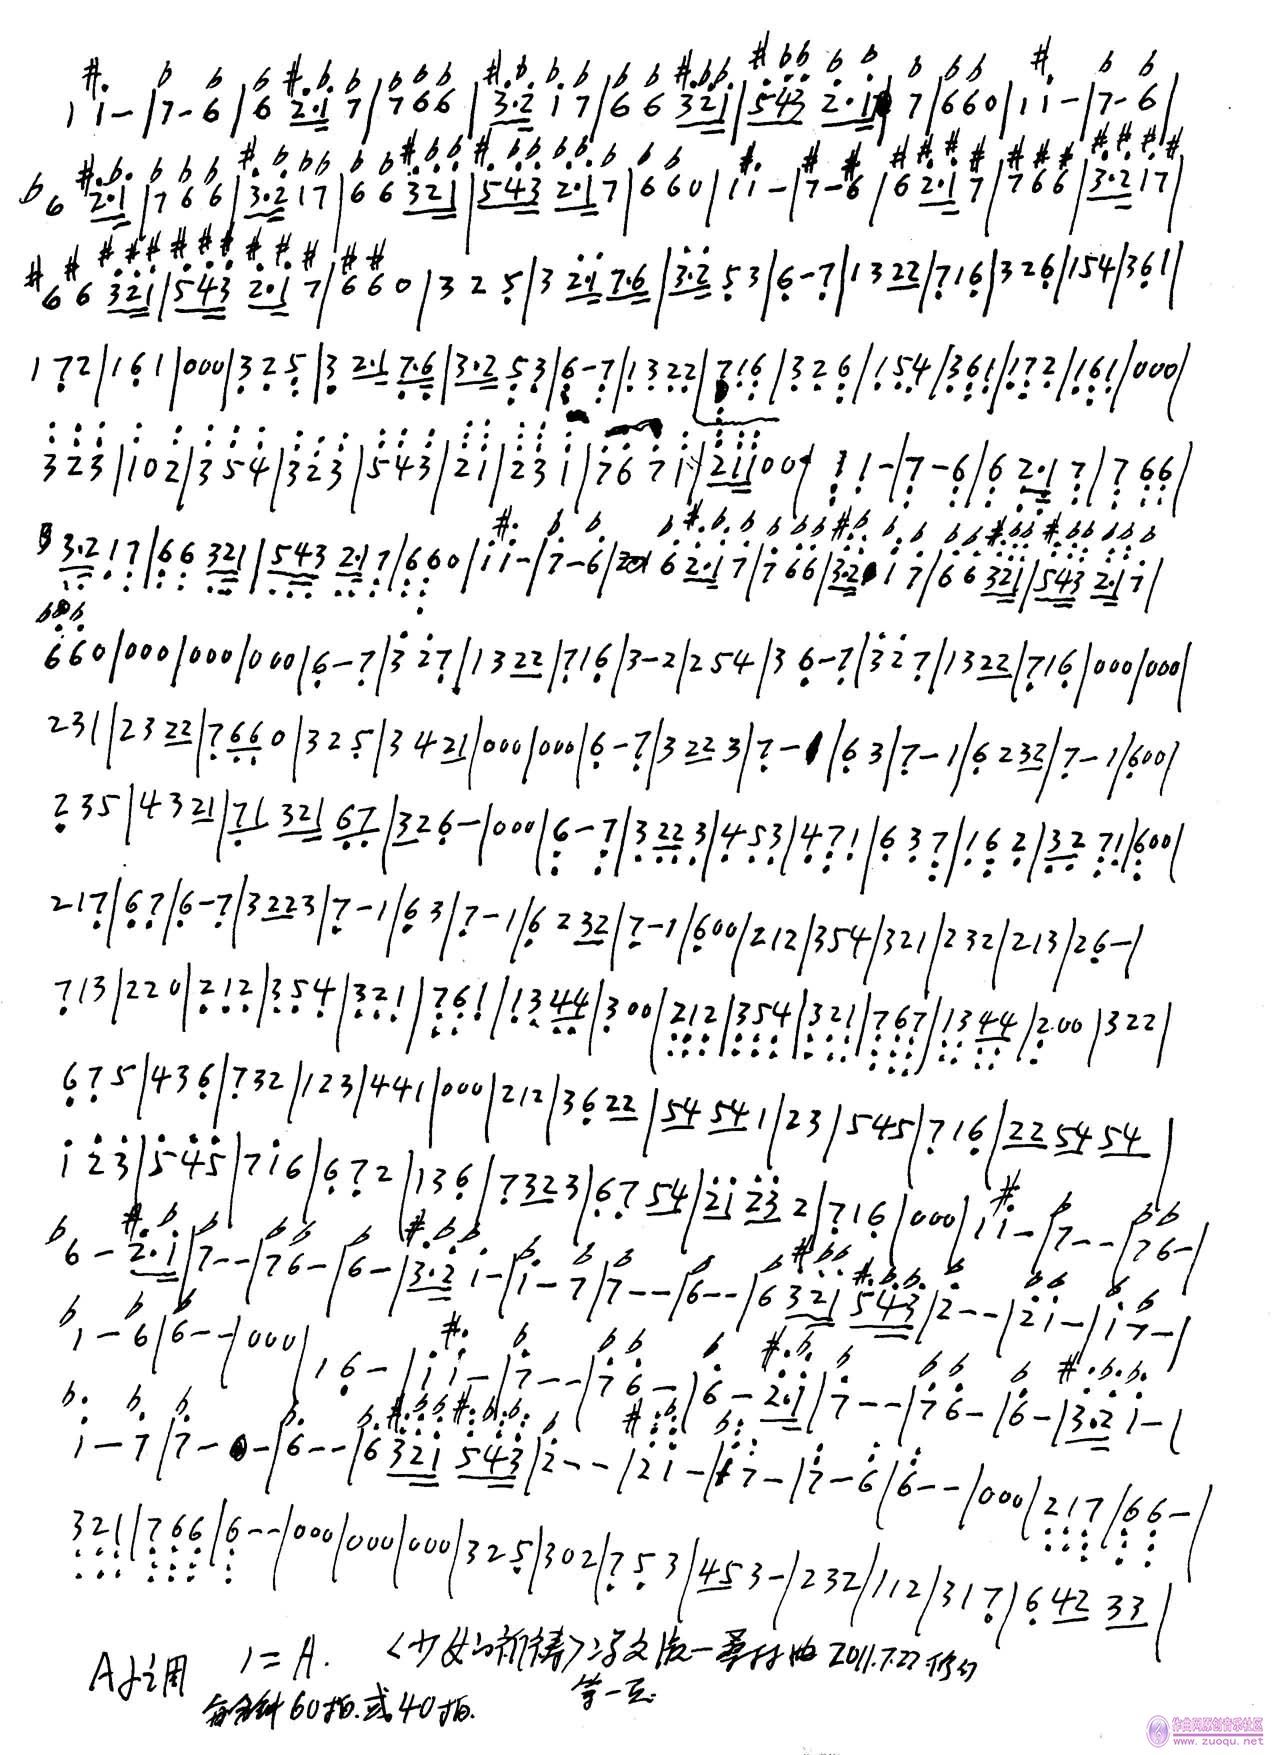 1 1 - | 7 - 6 | 6 2·1 7 | 7 6 6 | 3·2 1 7 | 6 6 321 | 543 2·1 7 | 6 6 0 | 1 1 - | 7 - 6 |
6 2·1 | 7 6 6 | 3·2 1 7 | 6 6 321 | 543 2·1 7 | 6 6 0 | 1 1 - | 7 - 6 | 6 2·1 7 | 7 6 6 | 3·2 1 7 |
6 6 321 | 543 2·1 7 | 6 6 0 | 3 2 5 | 3 2·1 7·6 | 3·2 5 3 | 6 - 7 | 1 3 22 | 7 1 6 | 3 2 6 | 1 5 4 | 3 6 1 |
1 7 2 | 1 6 1 | 0 0 0 | 3 2 5 | 3 2·1 7·6 | 3·2 5 3 | 6 - 7 | 1 3 22 | 7 1 6 | 3 2 6 | 1 5 4 | 3 6 1 | 1 7 2 | 1 6 1 | 0 0 0 |
3 2 3 | 1 0 2 | 3 5 4 | 3 2 3 | 5 4 3 | 2 1 | 2 3 1 | 7 6 7 1 | 211 0 0 1 1 - | 7 - 6 | 6 2·1 7 | 7 6 6 |
3·2 1 7 | 6 6 321 | 543 2·1 7 | 6 6 0 | 1 1 - | 7 - 6 | 6 2·1 7 | 7 6 6 | 3·2 1 7 | 6 6 321 | 543 2·1 7 |
6 6 0 | 0 0 0 | 0 0 0 | 0 0 0 | 6 - 7 | 3 2 7 | 1 3 22 | 7 1 6 | 3 - 2 | 2 5 4 | 3 6 - 7 | 3 2 7 | 1 3 22 | 7 1 6 | 0 0 0 | 0 0 0 |
2 3 1 | 2 3 22 | 7 66 0 | 3 2 5 | 3 4 21 | 0 0 0 | 0 0 0 | 6 - 7 | 3 22 3 | 7 - 1 | 6 3 | 7 - 1 | 6 2 32 | 7 - 1 | 6 0 0 |
2 3 5 | 4 3 21 | 71 321 67 | 32 6 - | 0 0 0 | 6 - 7 | 3 22 3 | 4 5 3 | 4 7 1 | 6 3 7 | 1 6 2 | 32 71 | 6 0 0 |
2 1 7 | 6 7 | 6 - 7 | 3 22 3 | 7 - 1 | 6 3 | 7 - 1 | 6 2 32 | 7 - 1 | 6 0 0 | 2 1 2 | 3 5 4 | 3 2 1 | 2 3 2 | 2 1 3 | 2 6 - |
7 1 3 | 2 2 0 | 2 1 2 | 3 5 4 | 3 2 1 | 7 6 1 | 1 3 44 | 3 0 0 | 2 1 2 | 3 5 4 | 3 2 1 | 7 6 7 | 1 3 44 | 2 0 0 | 3 2 2 |
6 7 5 | 4 3 6 | 7 3 2 | 1 2 3 | 4 4 1 | 0 0 0 | 2 1 2 | 3 6 22 | 54 54 1 | 2 3 | 5 4 5 | 7 1 6 | 22 54 54 |
1 2 3 | 5 4 5 | 7 1 6 | 6 7 2 | 1 3 6 | 7 32 3 | 6 7 54 | 21 23 2 | 7 1 6 | 0 0 0 | 1 1 - | 7 - - | 7 6 - |
6 - 2·1 | 7 - - | 7 6 - | 6 - | 3·2 1 - | 1 - 7 | 7 - - | 6 - - | 6 321 543 | 2 - - | 2 1 - | 1 7 - |
1 - 6 | 6 - - | 0 0 0 | 1 6 - | 1 1 - | 7 - - | 7 6 - | 6 - 2·1 | 7 - - | 7 6 - | 6 - | 3·2 1 - |
1 - 7 | 7 - - | 6 - - | 6 321 543 | 2 - - | 2 1 - | 7 - | 7 - 6 | 6 - - | 0 0 0 | 2 1 7 | 6 6 - |
3 2 1 | 7 6 6 | 6 - - | 0 0 0 | 0 0 0 | 0 0 0 | 3 2 5 | 3 0 2 | 7 5 3 | 45 3 - | 2 3 2 | 1 1 2 | 3 1 7 | 6 42 33 |
A 调用 1=A. 《少女的祈祷》 2011.7.22
每分钟60拍.或40拍. 第一页.
作曲网原创音乐社区
www.zuoqu.net